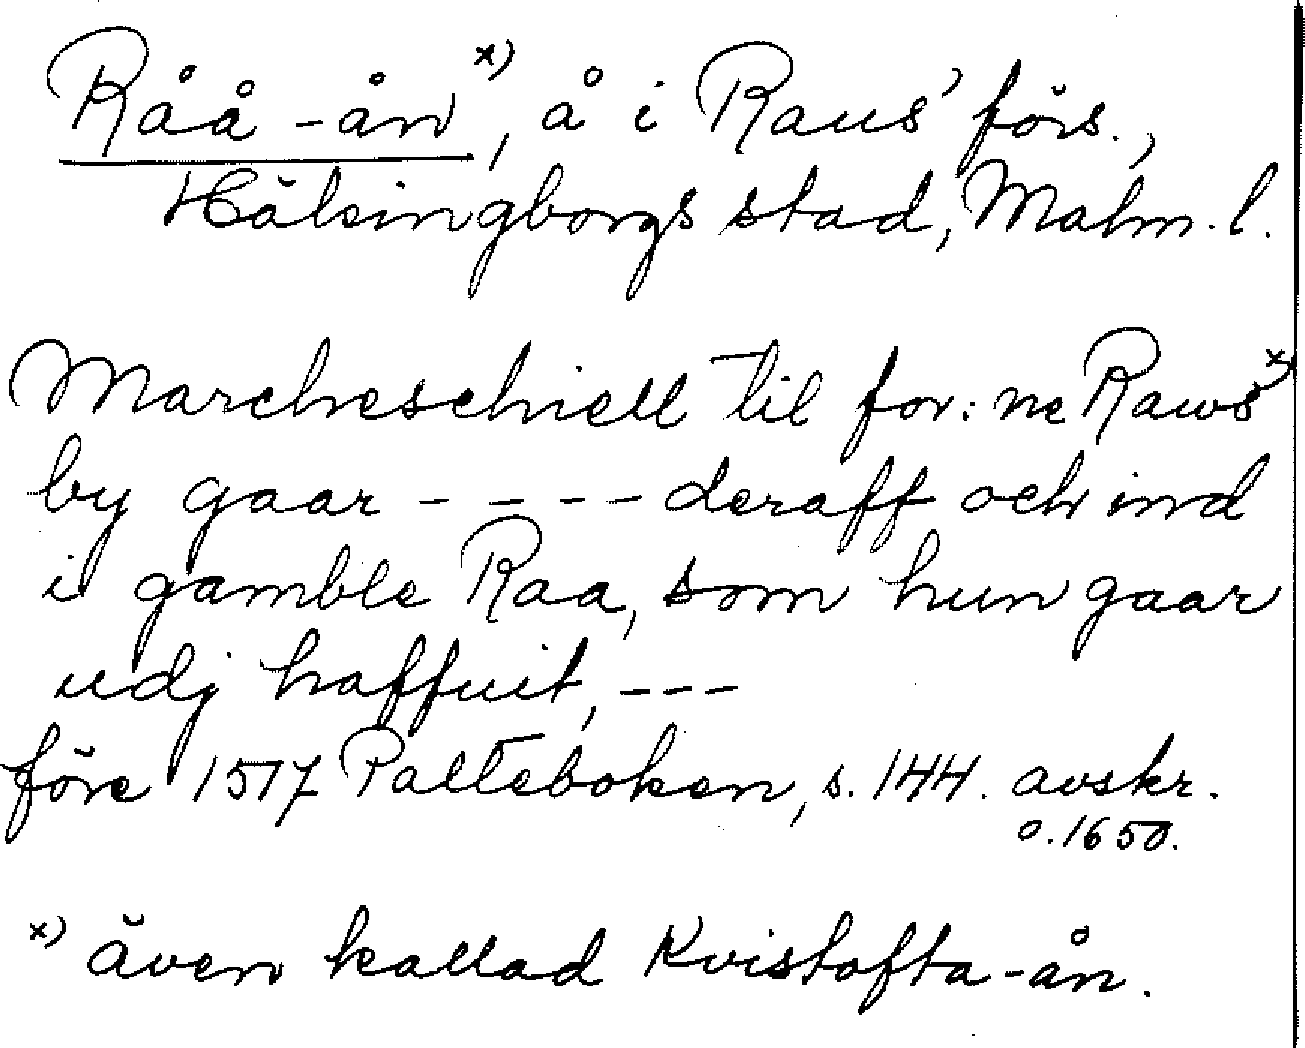 Råå-ån x), å i Raus' förs.,
Hälsingborgs stad, Malm. l.
Marcheschiell til for: ne Raws x)
by gaar - - - - deraff och ind
i gamble Raa, som hun gaar
udj haffuit, ---
före 1517 Palteboken, s. 144. avskr.
o. 1650.
x) även kallad Kvistofta-ån.